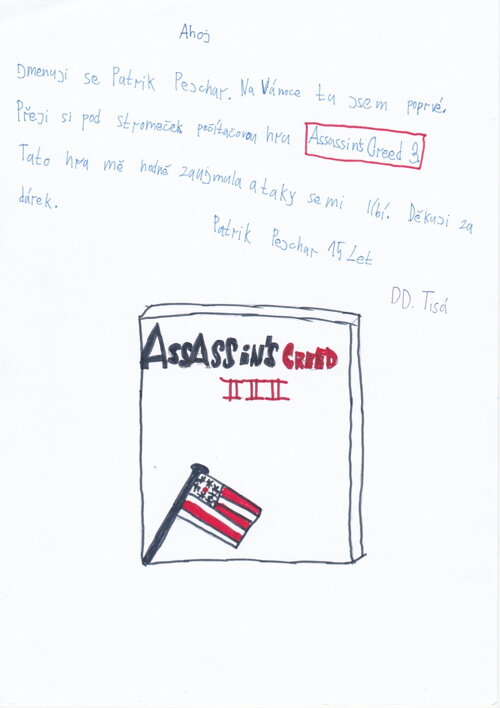 Ahoj
Jmenuji se Patrik Pejchar. Na Vánoce tu jsem poprvé.
Přeji si pod stromeček počítačovou hru Assassin's Creed 3.
Tato hra mě hodně zaujmula a taky se mi líbí. Děkuji za
dárek.
Patrik Pejchar 15 Let
DD. Tisá
ASSASSiN'S CREED
III